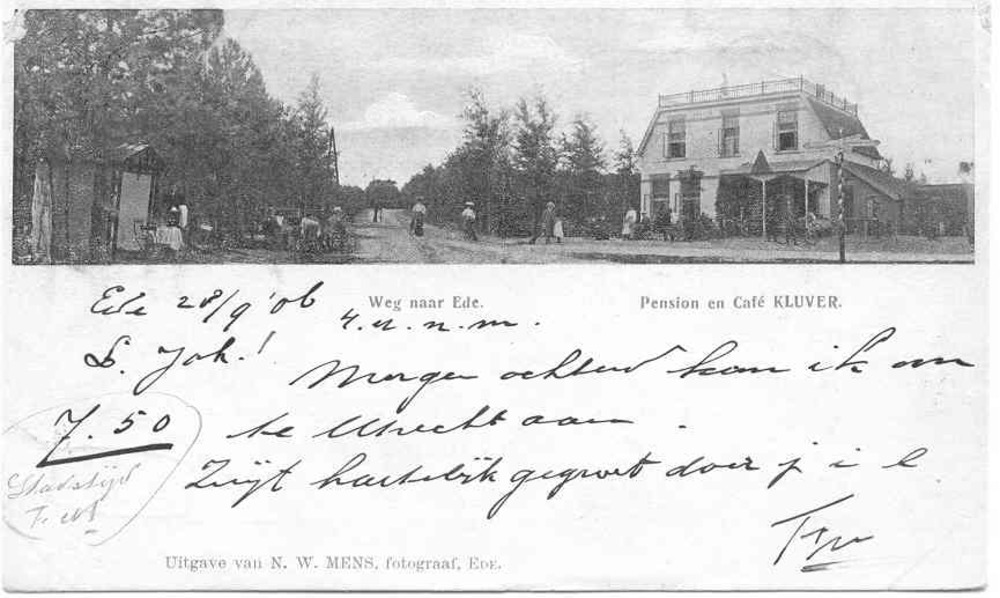 Weg naar Ede.
Pension en Café KLUVER.
Ede 28/9 '06
4.u.n.m.
L. Joh.!
Morgen ochtend kom ik om
7.50 te Utrecht aan.
Stadstijd
Zijt hartelijk gegroet door j i l
Uitgave van N. W. MENS, fotograaf, EDE.